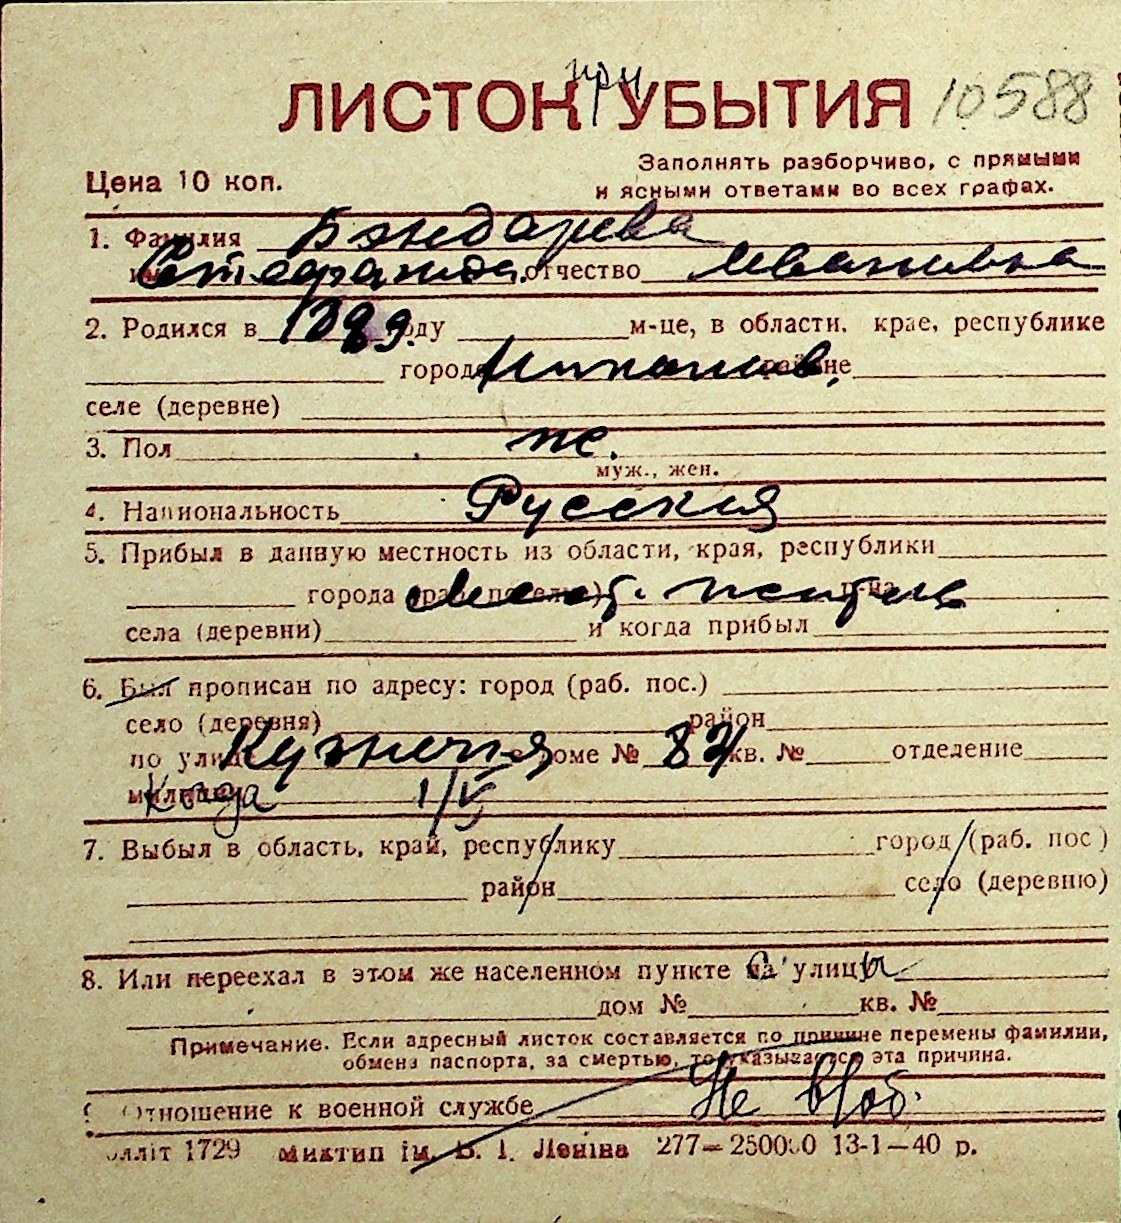 ЛИСТОК при УБЫТИЯ 10588
Цена 10 коп.
Заполнять разборчиво, с прямыми
и ясными ответами во всех графах.
1. Фамилия Бондарева
имя Стефанида отчество Ивановна
2. Родился в 1899 году м-це, в области, крае, республике
городе Николаев районе
селе (деревне)
3. Пол ж.
муж., жен.
4. Национальность Русская
5. Прибыл в данную местность из области, края, республики
города (раб. поселка) мест. житель р-на
села (деревни) и когда прибыл
6. Был прописан по адресу: город (раб. пос.)
село (деревня) район
по улице Кузнечная доме № кв. № отделение
милиции Когда 1/V
7. Выбыл в область, край, республику город (раб. пос)
район село (деревню)
8. Или переехал в этом же населенном пункте на с улицы
дом № кв. №
Примечание. Если адресный листок составляется по причине перемены фамилии,
обмена паспорта, за смертью, то указывается эта причина.
9. Отношение к военной службе Не в/об.
1729 Миктип ім. В. І. Леніна 277—250000 13-1—40 р.